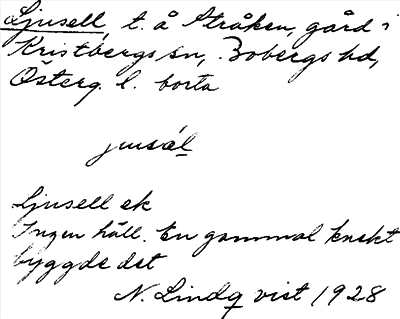 Ljusell, t. å Stråken, gård i
Kristbergs sn, Bobergs hd,
Österg. l. borta
jusál
Ljusell ek
Ingen häll. En gammal knekt
byggde det
N. Lindqvist 1928